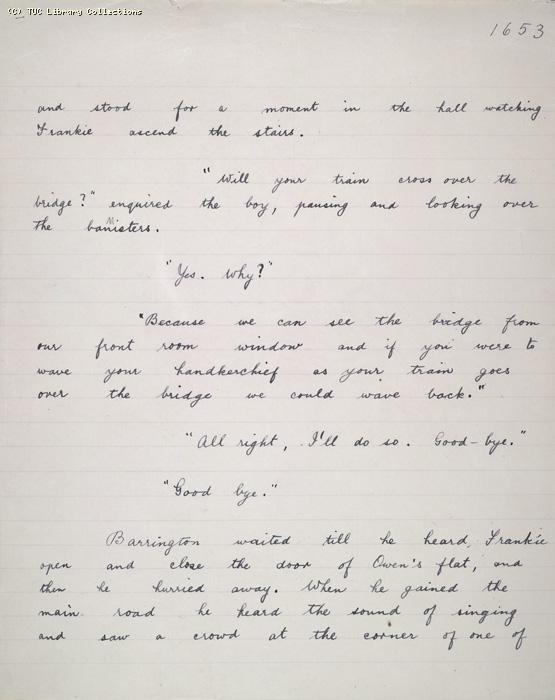 (C) TUC Library Collections
1653
and stood for a moment in the hall watching
Frankie ascend the stairs.
"Will your train cross over the
bridge?" enquired the boy, pausing and looking over
the bannisters.
"Yes. Why?"
"Because we can see the bridge from
our front room window and if you were to
wave your handkerchief as your train goes
over the bridge we could wave back."
"All right, I'll do so. Good-bye."
"Good bye."
Barrington waited till he heard Frankie
open and close the door of Owen's flat, and
then he hurried away. When he gained the
main road he heard the sound of singing
and saw a crowd at the corner of one of